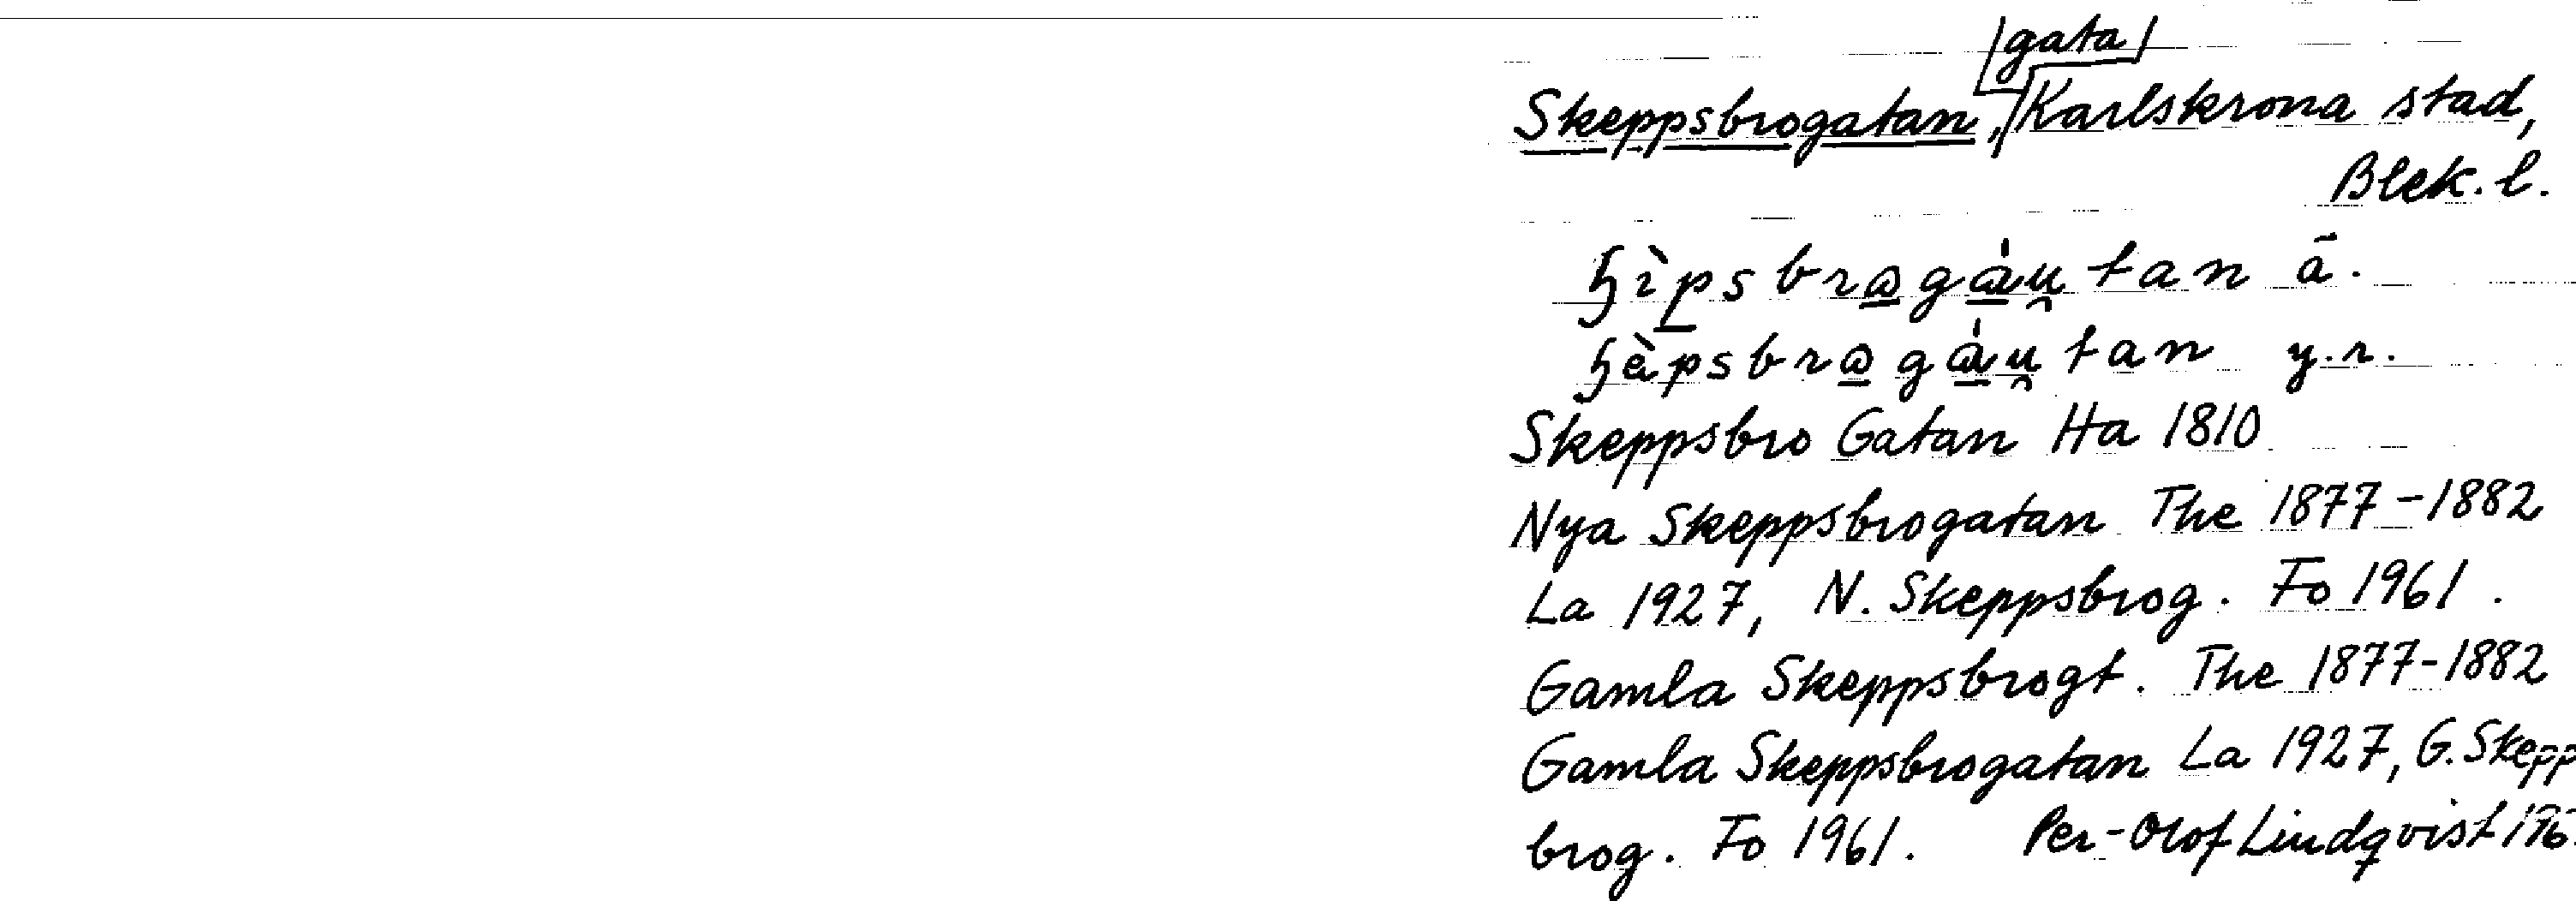 |gata|
Skeppsbrogatan, Karlskrona stad,
Blek. l.
ā.
y.r.
Skeppsbro Gatan Ha 1810
Nya Skeppsbrogatan The 1877-1882
La 1927, N. Skeppsbrog. Fo 1961.
Gamla Skeppsbrogt. The 1877-1882
Gamla Skeppsbrogatan La 1927, G. Skepp
brog. Fo 1961. Per-Olof Lindqvist